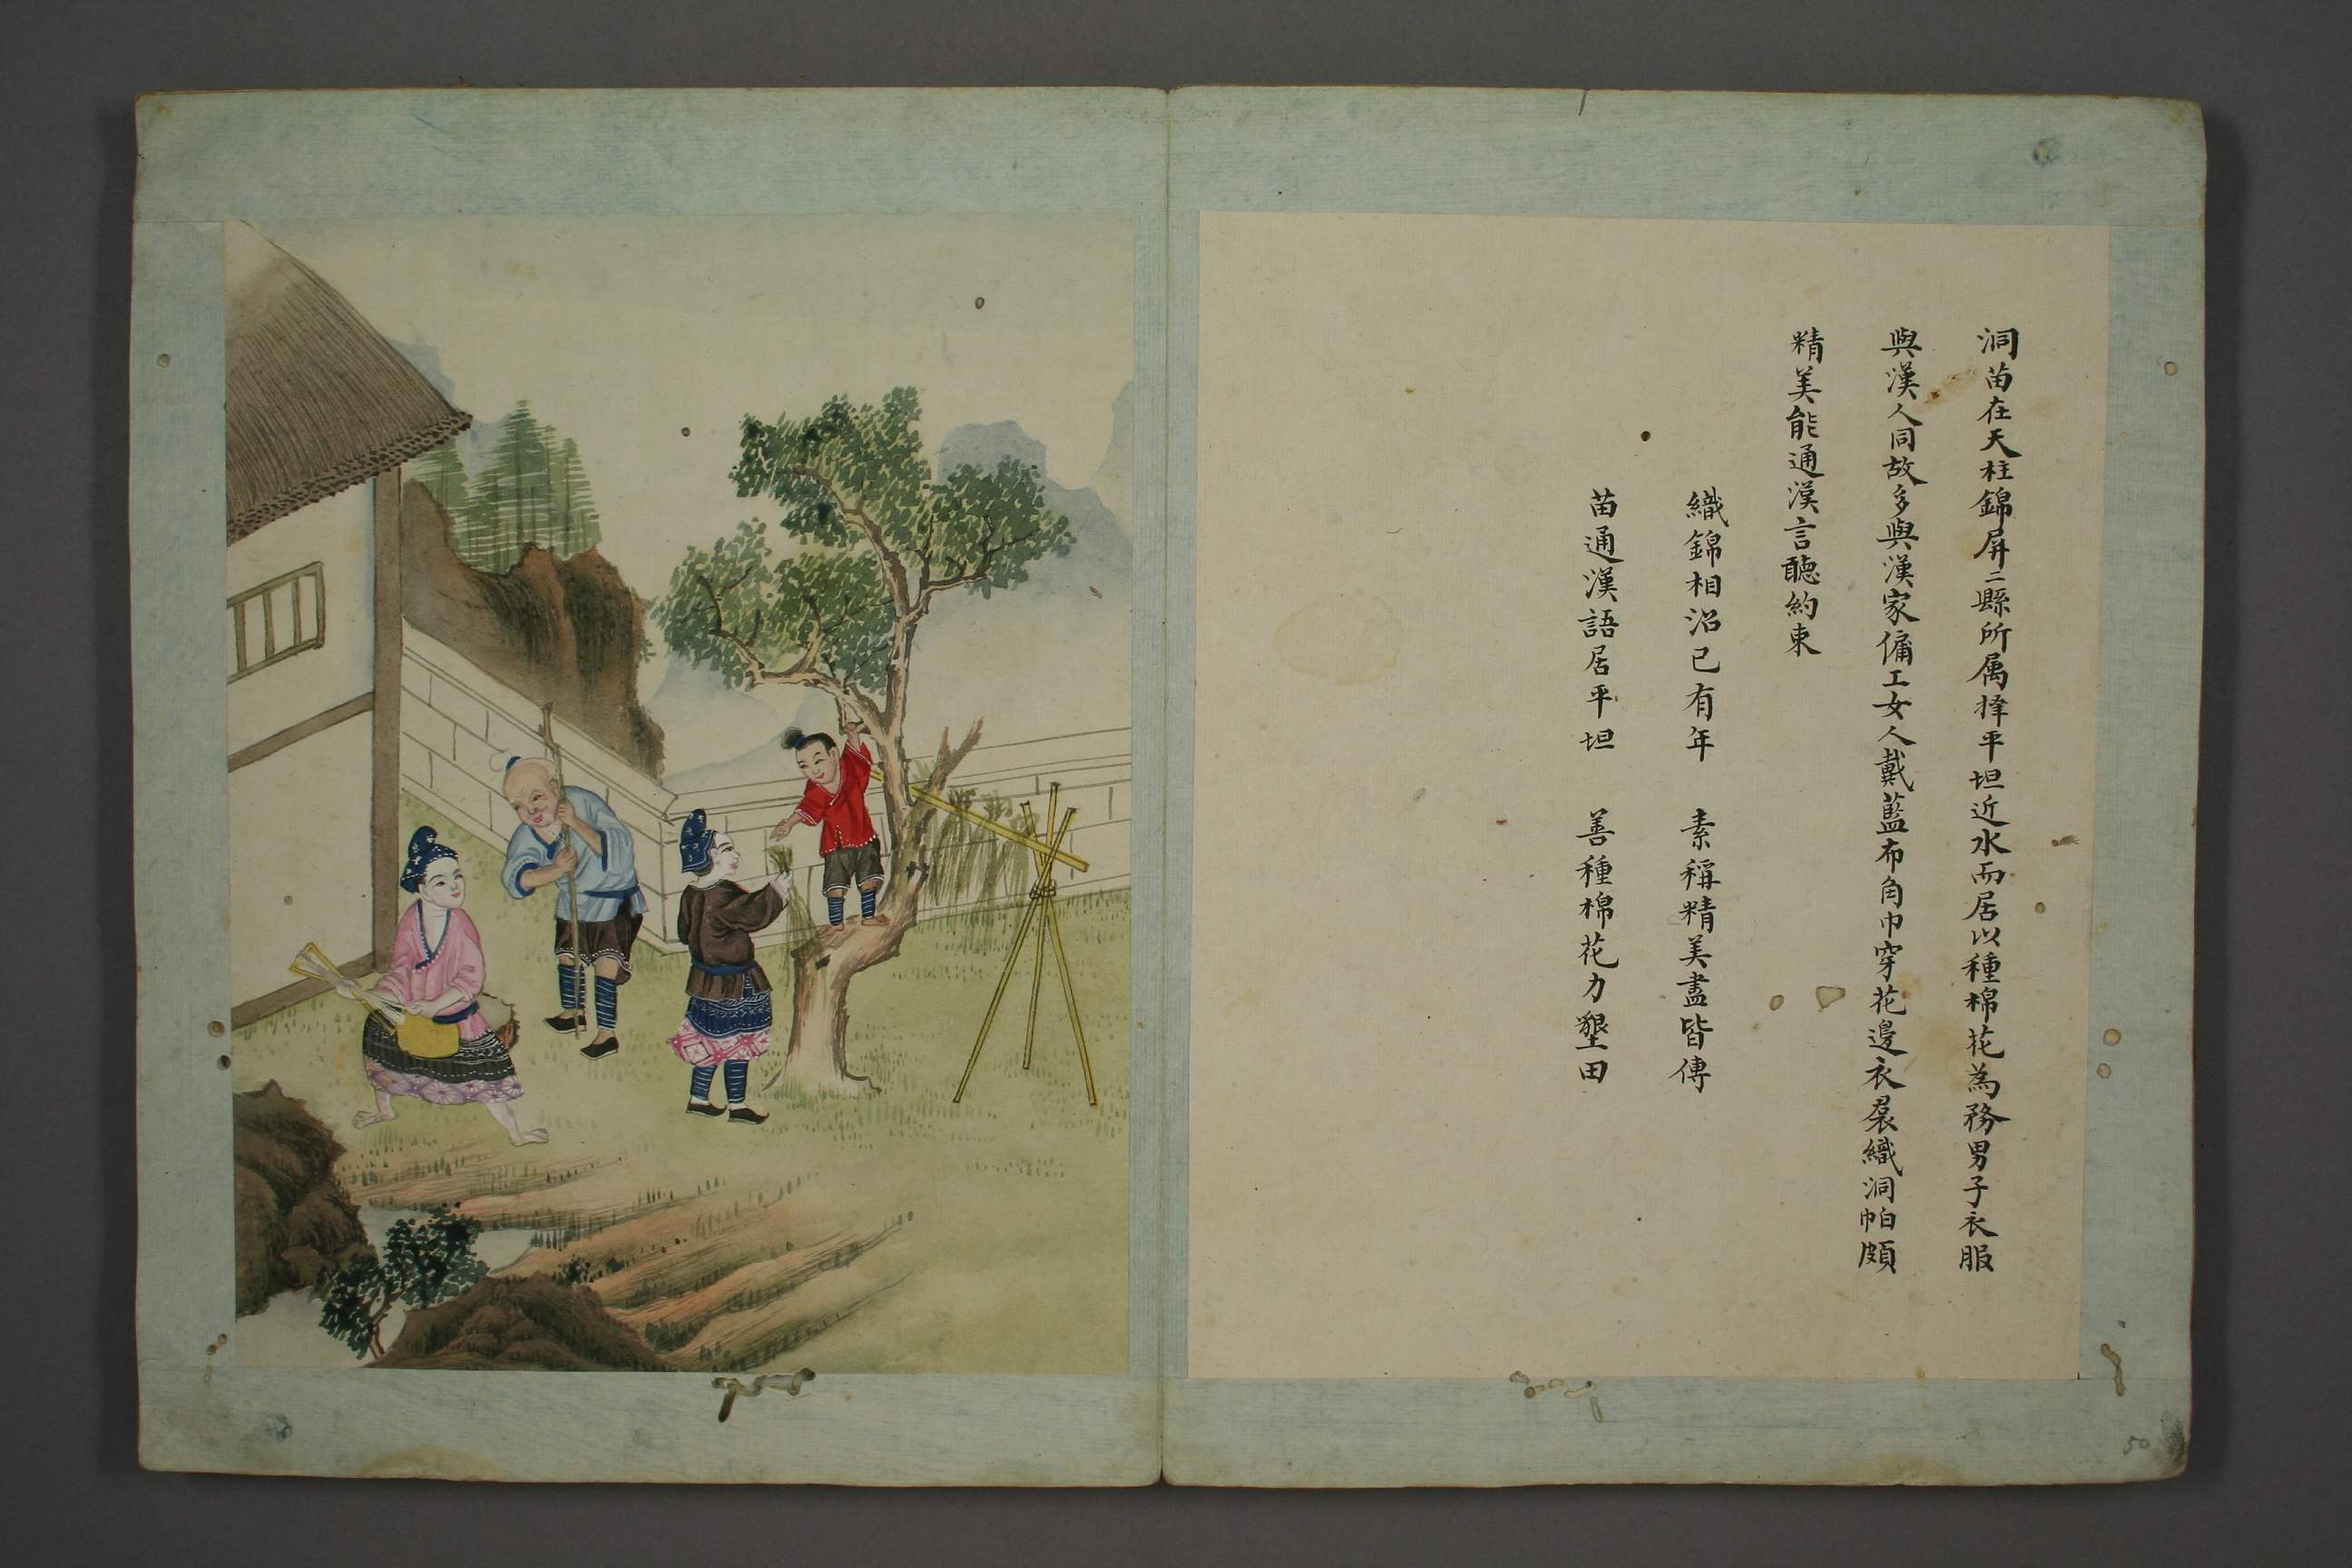 洞苗在天柱錦屏二縣所属擇平坦近水而居以種棉花為務男子衣服
與漢人同故多與漢家傭工女人戴藍布角巾穿花邊衣裠織洞帕頗
精美能通漢言聽約束
織錦相沿已有年 素稱精美盡皆傳
苗通漢語居平坦 善種棉花力墾田
50